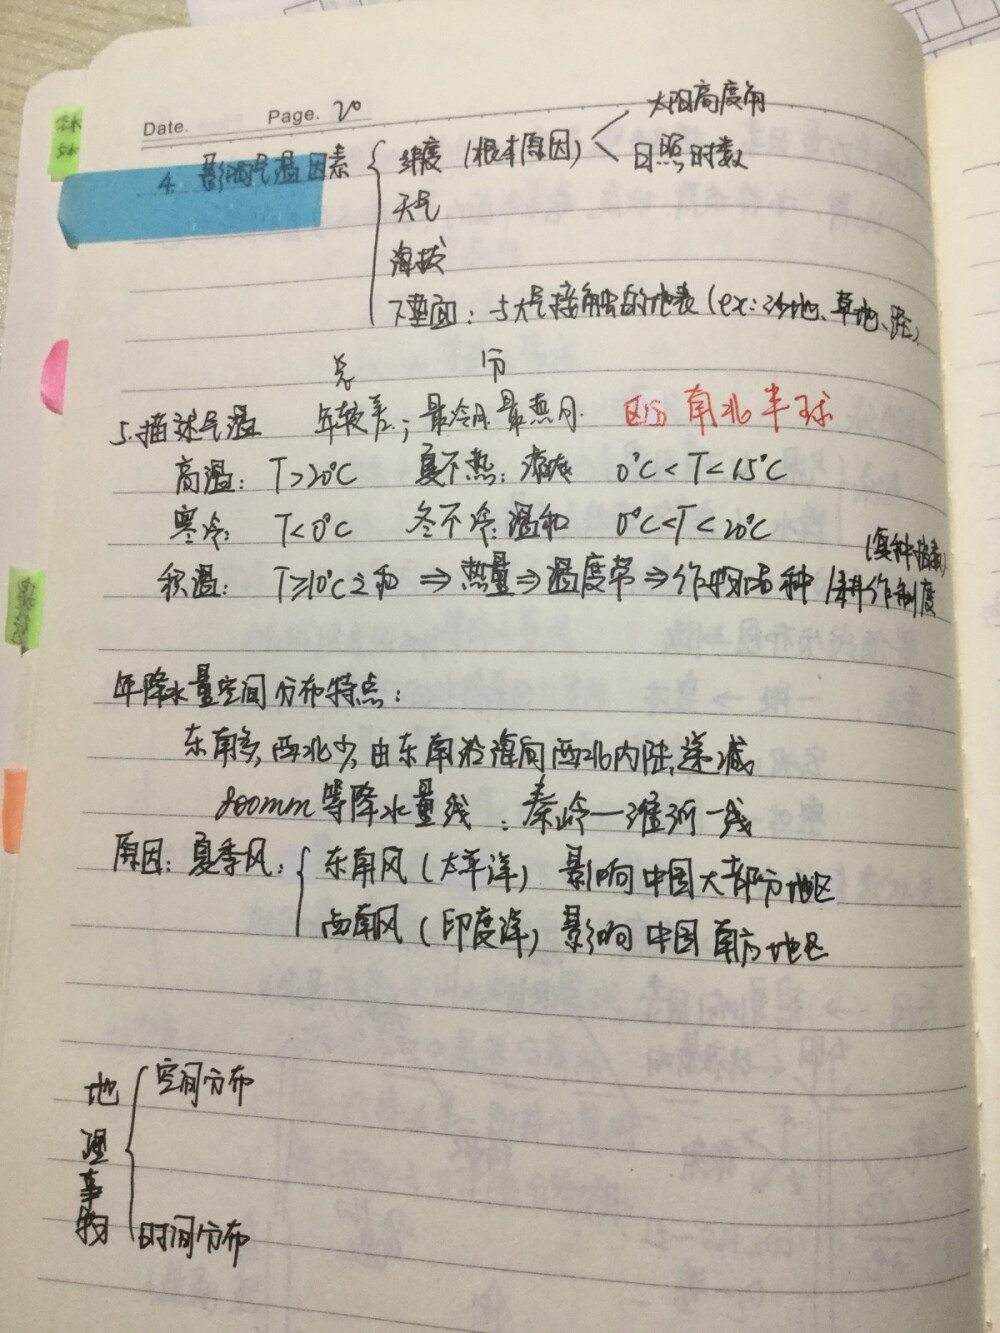 Date. Page. 20
太阳高度角
4. 影响气温因素 纬度（根本原因） 日照时数
天气
海拔
下垫面：与大气接触的地表（ex：沙地、草地、路）
总 分
5.描述气温 年较差；最冷月 最热月 区分 南北半球
高温：T>20℃ 夏不热：凉爽 0℃<T<15℃
寒冷：T<0℃ 冬不冷：温和 0℃<T<20℃
（复种指数）
积温：T≥10℃之和 ⇒热量⇒温度带⇒作物品种/耕作制度
年降水量空间分布特点：
东南多，西北少，由东南沿海向西北内陆递减
800mm等降水量线：秦岭—淮河一线
原因：夏季风：东南风（太平洋）影响中国大部分地区
西南风（印度洋）影响中国南方地区
地理事物
空间分布
时间分布